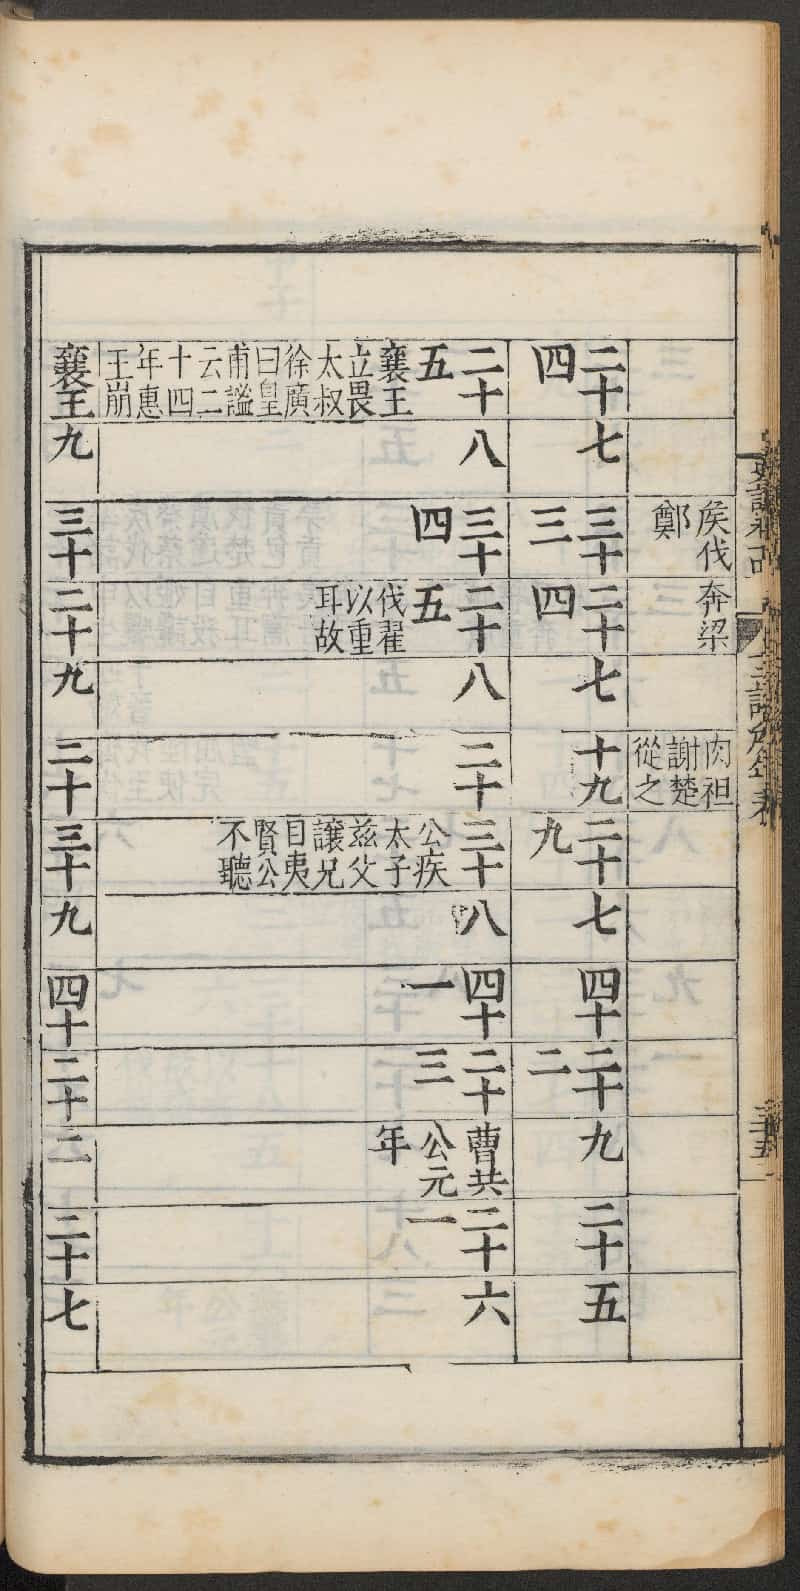 侯伐
鄭
奔梁
肉袒
謝楚
從之
二十
四
七
三十
三
二十
四
七
十九
二十
九
七
四十
二十
二
九
二十
五
二十
五
襄王
立畏
太叔
徐廣
曰皇
甫謐
云二
十四
年惠
王崩
八
三十
四
二十
五
伐翟
以重
耳故
八
二十
三十
公疾
太子
兹父
讓兄
目夷
賢公
不聽
八
四十
一
二十
三
曹共
公元
年
二十
一
六
襄王
九
三十
二十
九
二十
三十
九
四十
二十
二
二十
七